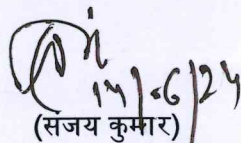 14/6/24
(संजय कुमार)